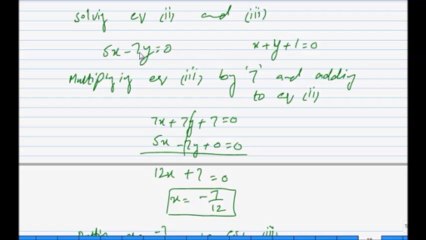 Solving eq (ii) and (iii)
5x-7y=0 x+y+1=0
Multiplying eq (iii) by '7' and adding
to eq (ii)
7x+7y+7=0
5x-7y+0=0
12x+7=0
x= -7/12